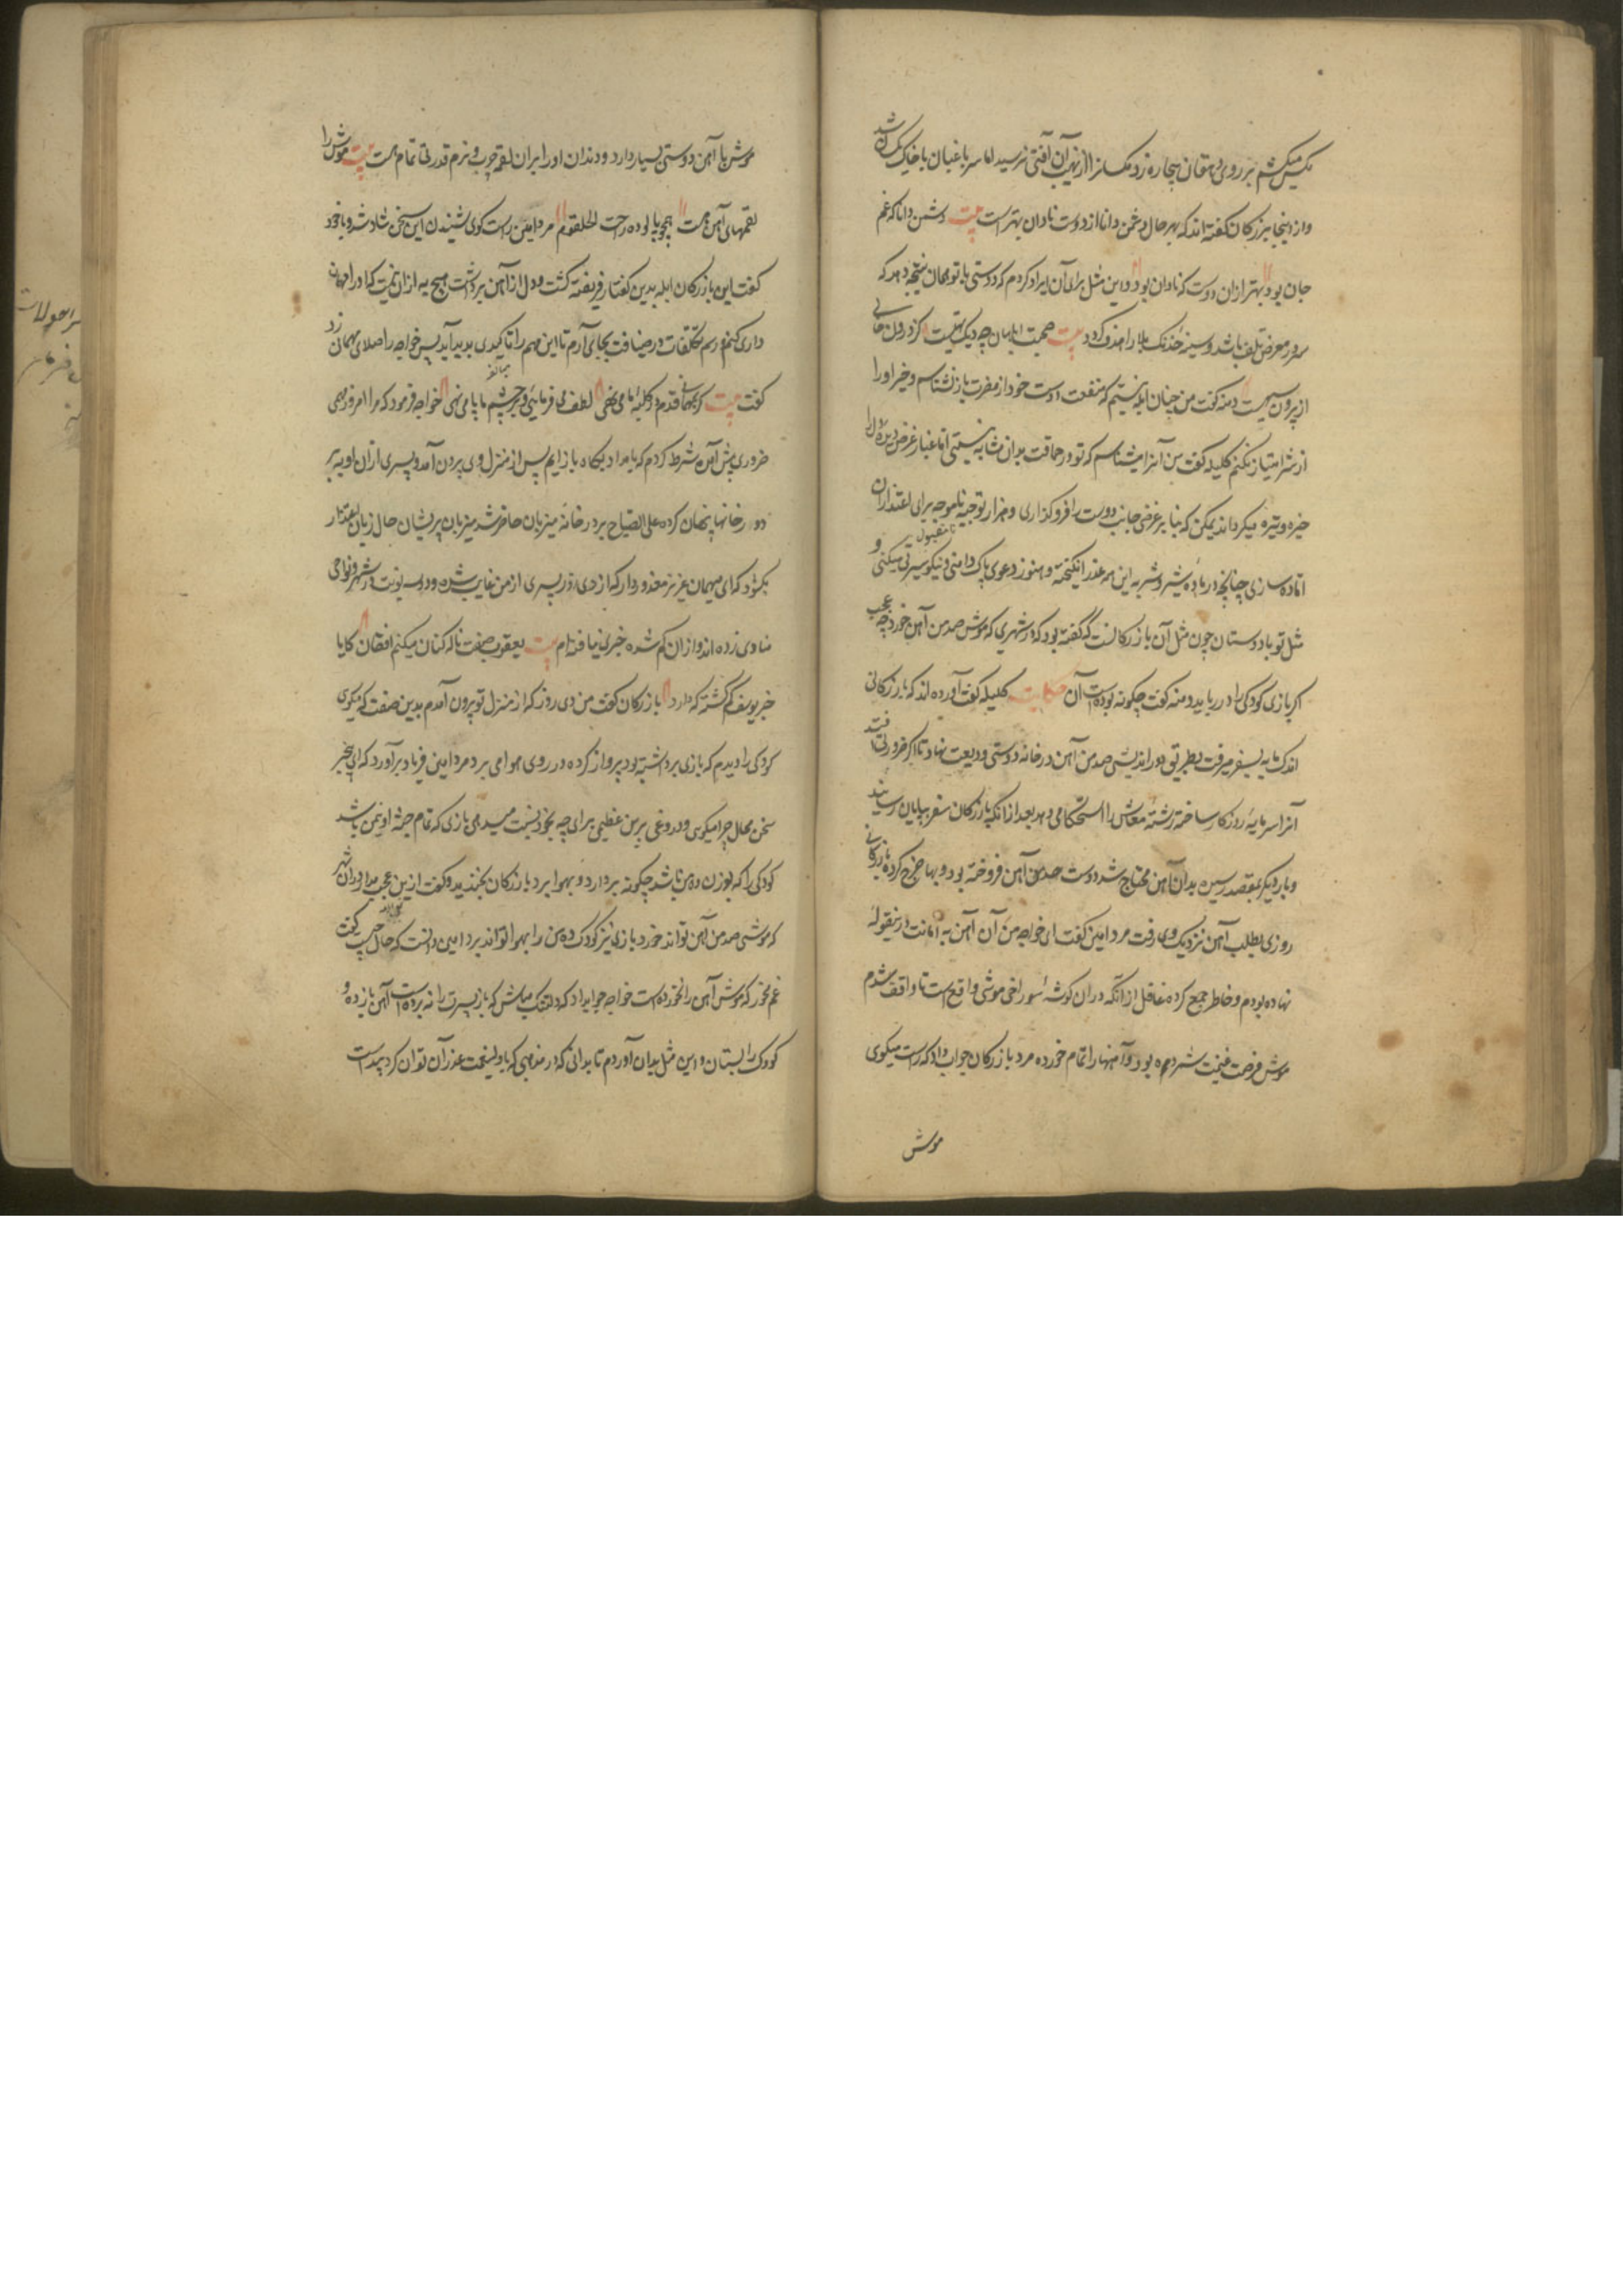 مکس میکشم بر روی دهقان بیچاره زد مکسانرا از نهیب آن آفتی نرسید اما سر باغبان با خاک یکسان شد
و از ینجا بزرکان کفته اند که بهر حال دشمن دانا از دوست نادان بهتر است بیت دشمن دانا که غم
جان بود بهتر از ان دوست که نادان بود و این مثل برای آن ایراد کردم که دوستی با تو همان نتیجه دهد که
سر در معرض تلف باشد و سینه خدنک بلا را هدف کردد بیت صحبت ابلهان چو دیک تهیست کز درون خالی
از برون سیهست دمنه کفت من چنان ابله نیستم که منفعت دوست خود از مضرت باز نشناسم و خیر او را
از شر امتیاز نکنم کلیله کفت من آنرا میشناسم که تو در حماقت بدان مثابه نیستی اما غبار غرض دیده دل را
خیره و تیره میکرداند یمکن که بنا بر غرضی جانب دوست را فرو کذاری و هزار توجیه ناموجه برای اعتذار آن
نامقبول
آماده سازی چنانچه در ماده شیر و شتربه این همه عذر انکیخته و هنوز دعوی پاک دامنی و نیکو سیرتی میکنی و
مثل تو با دوستان چون مثل آن بازرکانست که کفته بود که در شهری که موش صد من آهن خورد چه عجب
اکر بازی کودکی را در رباید دمنه کفت چکونه بوده است آن حکایت کلیله کفت آورده اند که بازرکانی
اندک مایه بسفر میرفت بطریق دور اندیشی صد من آهن در خانه دوستی ودیعت نهاد تا اکر ضرورتی افتد
آنرا سرمایه روزکار ساخته رشته معاش را استحکامی دهد بعد از انکه بازرکان سفر بپایان رسانید
و بار دیکر بمقصد رسید بدان آهن محتاج شد دوست صد من آهن فروخته بود و بها خرج کرده بازرکانی
روزی بطلب آهن نزدیک وی رفت مرد امین کفت ای خواجه من آن آهن به امانت در بیغوله
نهاده بودم و خاطر جمع کرده غافل از انکه در ان کوشه سوراخ موشی واقع است تا واقف شدم
موش فرصت غنیمت شمرده بود و آهنها را تمام خورده مرد بازرکان جواب داد که راست میکوی
موش
موش با آهن دوستی بسیار دارد و دندان او را بران لقمه چرب و نرم قدرتی تمام هست بیت موش را
لقمهای آهن هست همچو پالوده راحت الحلقوم مرد امین راست کوی شنیدن این سخن شاد شد و با خود
کفت این بازرکان ابله بدین کفتار فریفته کشت و دل از آهن برداشت هیچ به از ان نیست که او را مهمان
داری کنم و رسم تکلفات در ضیافت بجای آرم تا این مهم را تاکیدی پدید آید پس خواجه را صلای مهمانی زد
کفت بیت کر بمهمانی قدم در کلبهٔ ما می نهی لطف می فرمایی و بر چشم ما پا می نهی خواجه فرمود که مرا امروز مهمی
ضروری پیش آمده شرط کردم که بامداد پکاه باز آیم پس از منزل وی بیرون آمد و پسری از ان او ببرد
و در خانها پنهان کرده علی الصباح بر در خانه میزبان حاضر شد میزبان پریشان حال زبان اعتذار
بکشود که ای میهمان عزیز معذور دار که از دی روز پسری از من غایب شده و دو سه نوبت در شهر و نواحی
منادی زده اند و از ان کم شده خبری نیافته ام بیت یعقوب صفت ناله کنان میکنم افغان کایا
خبر یوسف کم کشته که دارد بازرکان کفت من دی روز که از منزل تو بیرون آمدم بدین صفت که میکوی
کودکی را دیدم که بازی برداشته بود پرواز کرده در روی هوا می برد مرد امین فریاد برآورد که ای بیخبر
سخن محال چرا میکوی و دروغی بدین عظیمی برای چه بخود نسبت میدهی بازی که تمام جثه او نیم من باشد
کودکی را که بوزن ده من باشد چکونه بردارد و بهوا برد بازرکان بخندید و کفت ازین عجب مدار در ان شهر
که موشی صد من آهن تواند خورد بازی نیز کودک ده من را بهوا تواند برد امین دانست که حال چیست کفت
غم مخور که موش آهن را نخورده است خواجه جواب داد که دلتنک مباش که باز پسرت را نه برده است آهن باز ده و
کودک را بستان و این مثل بدان آوردم تا بدانی که در مذهبی که با ولینعمت غدر آن توان کرد پیداست